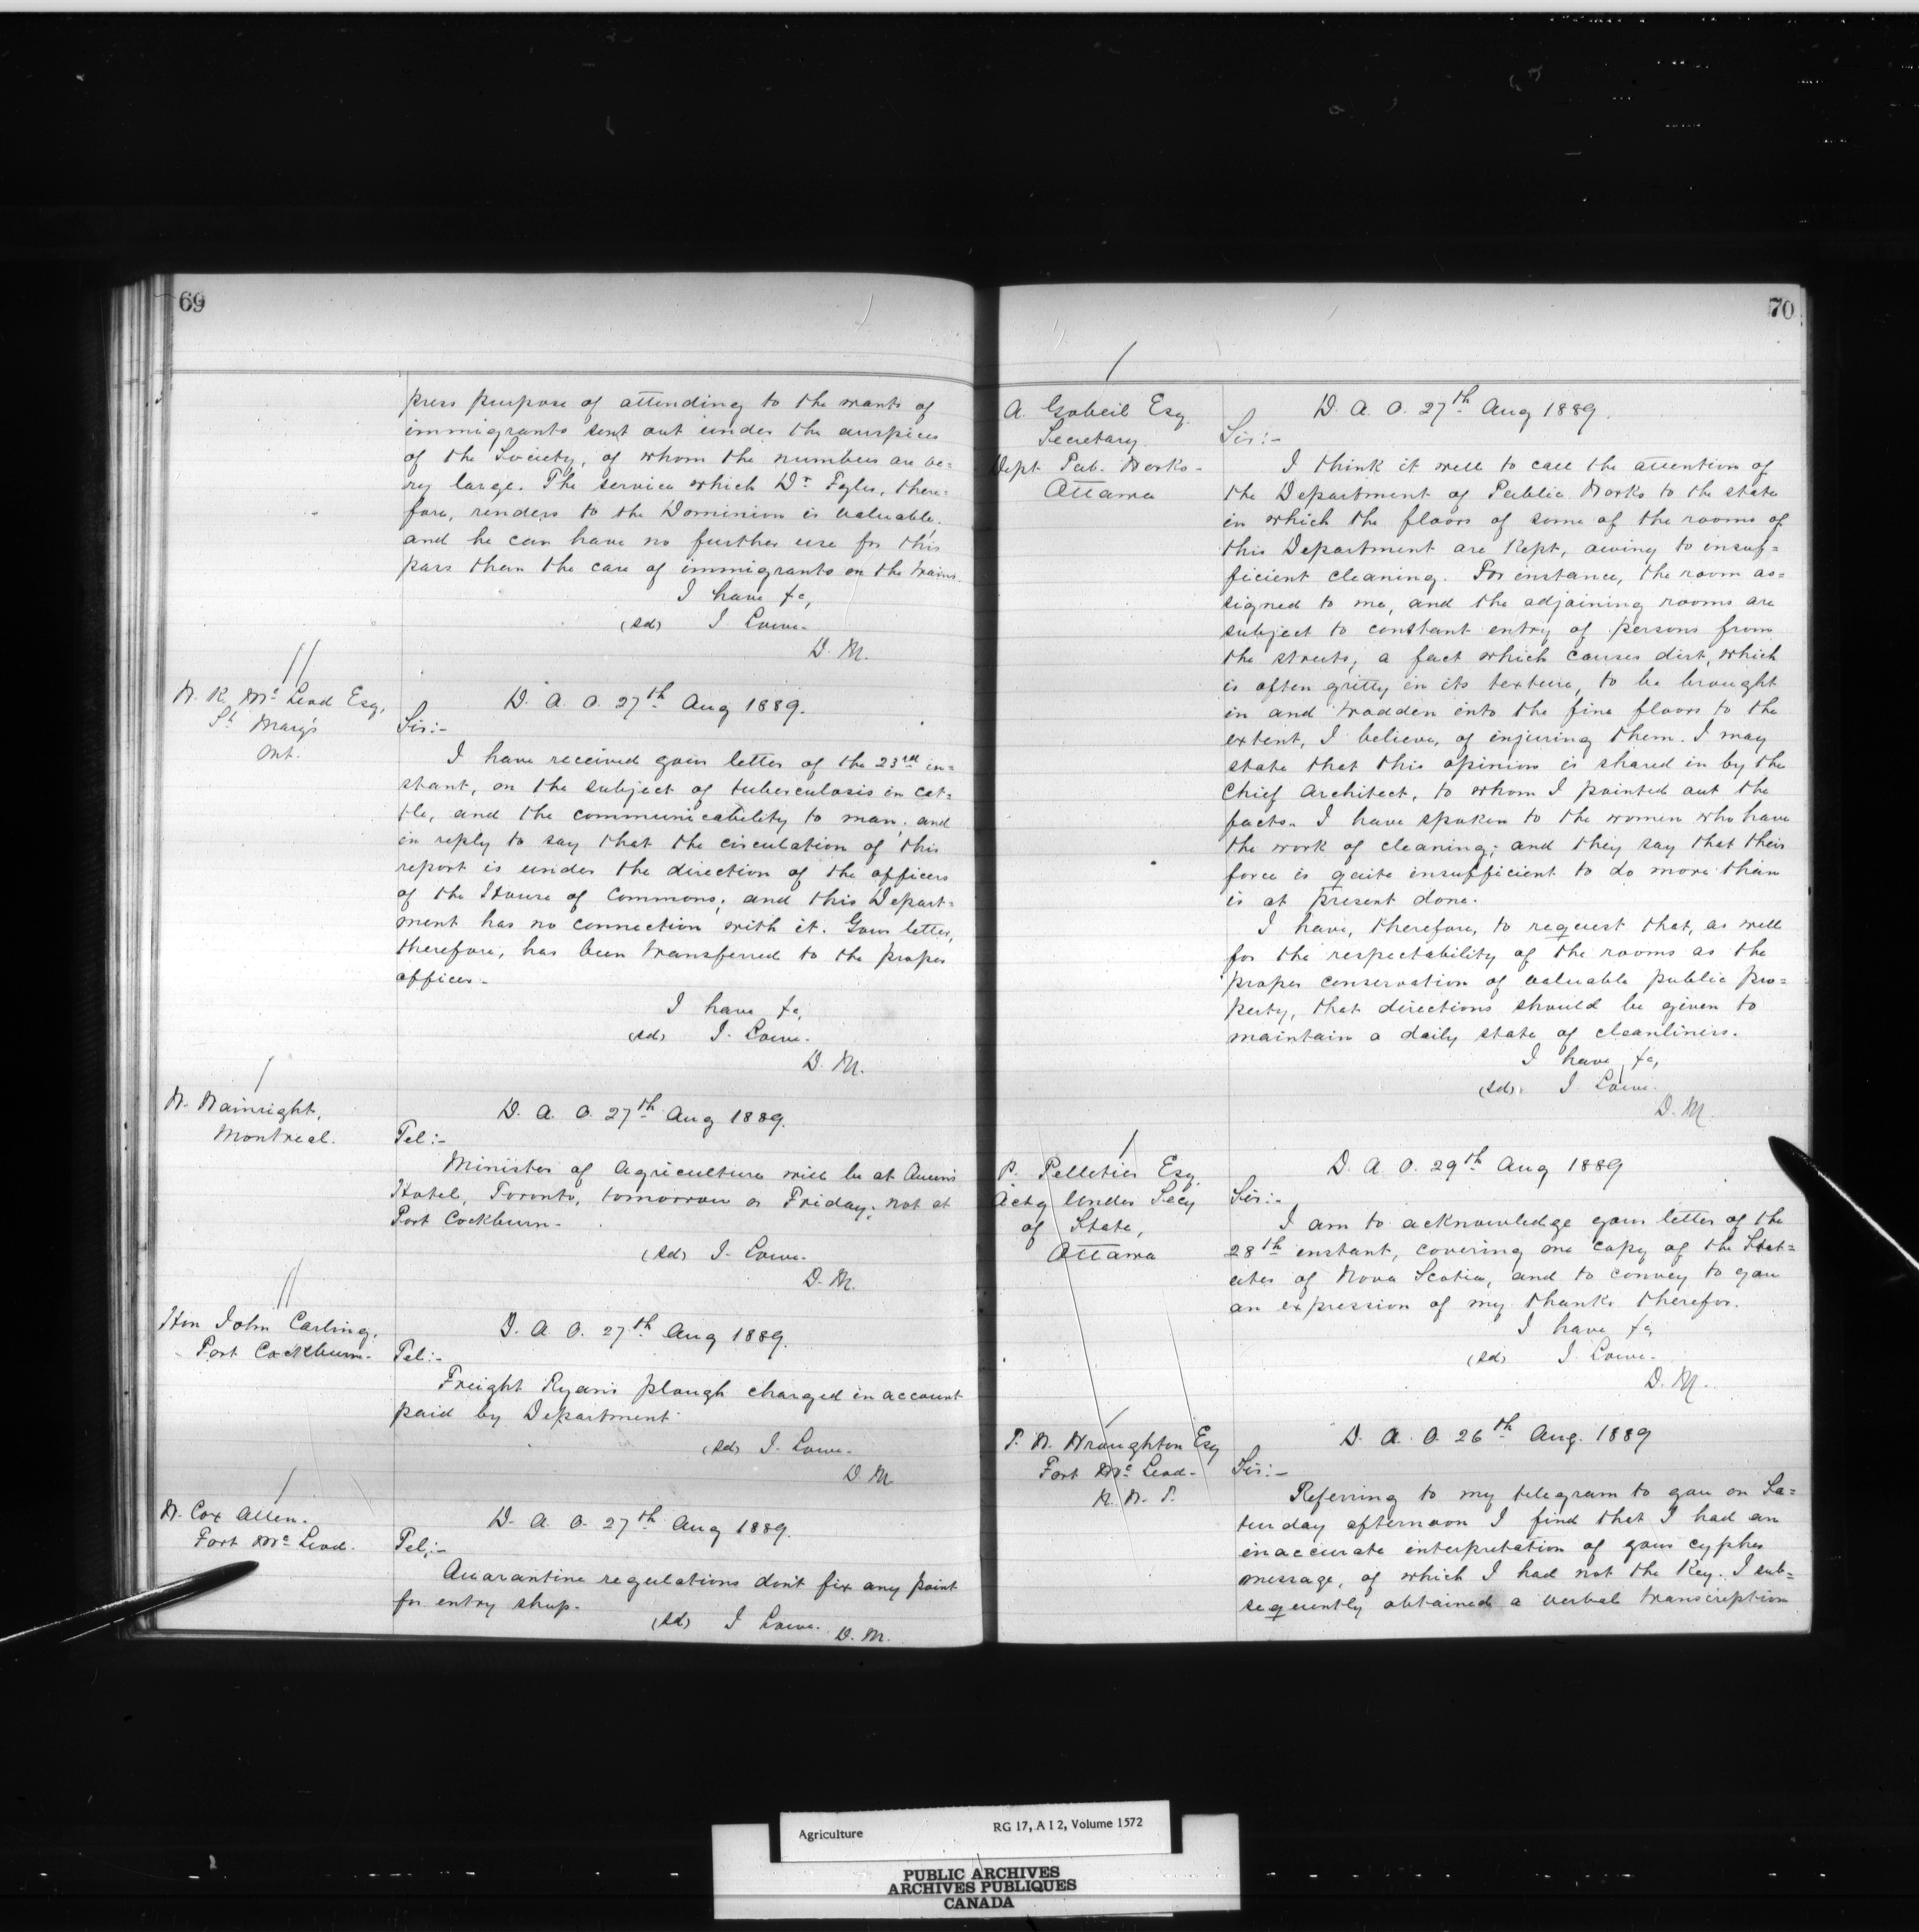 69
press purpose of attending to the wants of
immigrants sent out under the auspices
of the Society, of whom the numbers are ve=
ry large. The service which Dr. Eyles, there=
fore, renders to the Dominion is valuable,
and he can have no further use for this
pass than the care of immigrants on the trains.
I have &c,
(sd) J. Lowe.
D. M.
Mc Leod Esq,
St Mary's
Ont.
D. A. O. 27th Aug 1889.
Sir:-
I have received your letter of the 23rd in=
stant, on the subject of tuberculosis in cat=
tle, and the communicability to man; and
in reply to say that the circulation of this
report is under the direction of the officers
of the House of Commons; and this Depart=
ment has no connection with it. Your letter,
therefore, has been transferred to the proper
officer.
I have &c,
(sd) J. Lowe.
D. M.
W. Wainright,
Montreal.
D. A. O. 27th Aug 1889.
Tel:-
Minister of Agriculture will be at Queen's
Hotel, Toronto, tomorrow or Friday; not at
Port Cockburn.
(sd) J. Lowe.
D. M.
Hon John Carling,
Port Cockburn.
D. A. O. 27th Aug 1889.
Tel:-
Freight Ryan's plough charged in account
paid by Department
(sd) J. Lowe.
D. M.
W. Cox Allen.
Fort Mc Leod.
D. A. O. 27th Aug 1889.
Tel:-
Quarantine regulations don't fix any point
for entry sheep.
(sd) J Lowe. D. M.
70
A. Gobeil Esq.
Secretary.
Dept Pub. Works-
Ottawa
D. A. O. 27th Aug 1889.
Sir:-
I think it well to call the attention of
the Department of Public Works to the state
in which the floors of some of the rooms of
this Department are kept, owing to insuf=
ficient cleaning. For instance, the room as=
signed to me, and the adjoining rooms are
subject to constant entry of persons from
the streets, a fact which causes dirt, which
is often gritty in its texture, to be brought
in and trodden into the fine floors to the
extent, I believe, of injuring them. I may
state that this opinion is shared in by the
Chief Architect, to whom I pointed out the
facts. I have spoken to the women who have
the work of cleaning; and they say that their
force is quite insufficient to do more than
is at present done.
I have, therefore, to request that, as well
for the respectability of the rooms as the
proper conservation of valuable public pro=
perty, that directions should be given to
maintain a daily state of cleanliness.
I have &c,
(sd). J. Lowe.
D. M.
P. Pelletier Esq.
Actg Under Secy
of State,
Ottawa
D. A. O. 29th Aug 1889
Sir:-
I am to acknowledge your letter of the
28th instant, covering one copy of the Stat=
utes of Nova Scotia, and to convey to you
an expression of my thanks therefor.
I have &c,
(sd) J. Lowe.
D. M.
T. W. Wroughton Esq
Fort Mc Leod-
N. W. T.
D. A. O. 26th Aug. 1889
Sir:-
Referring to my telegram to you on Sa=
turday afternoon I find that I had an
inaccurate interpretation of your cypher
message, of which I had not the key. I sub=
sequently obtained a verbal transcription
Agriculture RG 17, A I 2, Volume 1572
PUBLIC ARCHIVES
ARCHIVES PUBLIQUES
CANADA